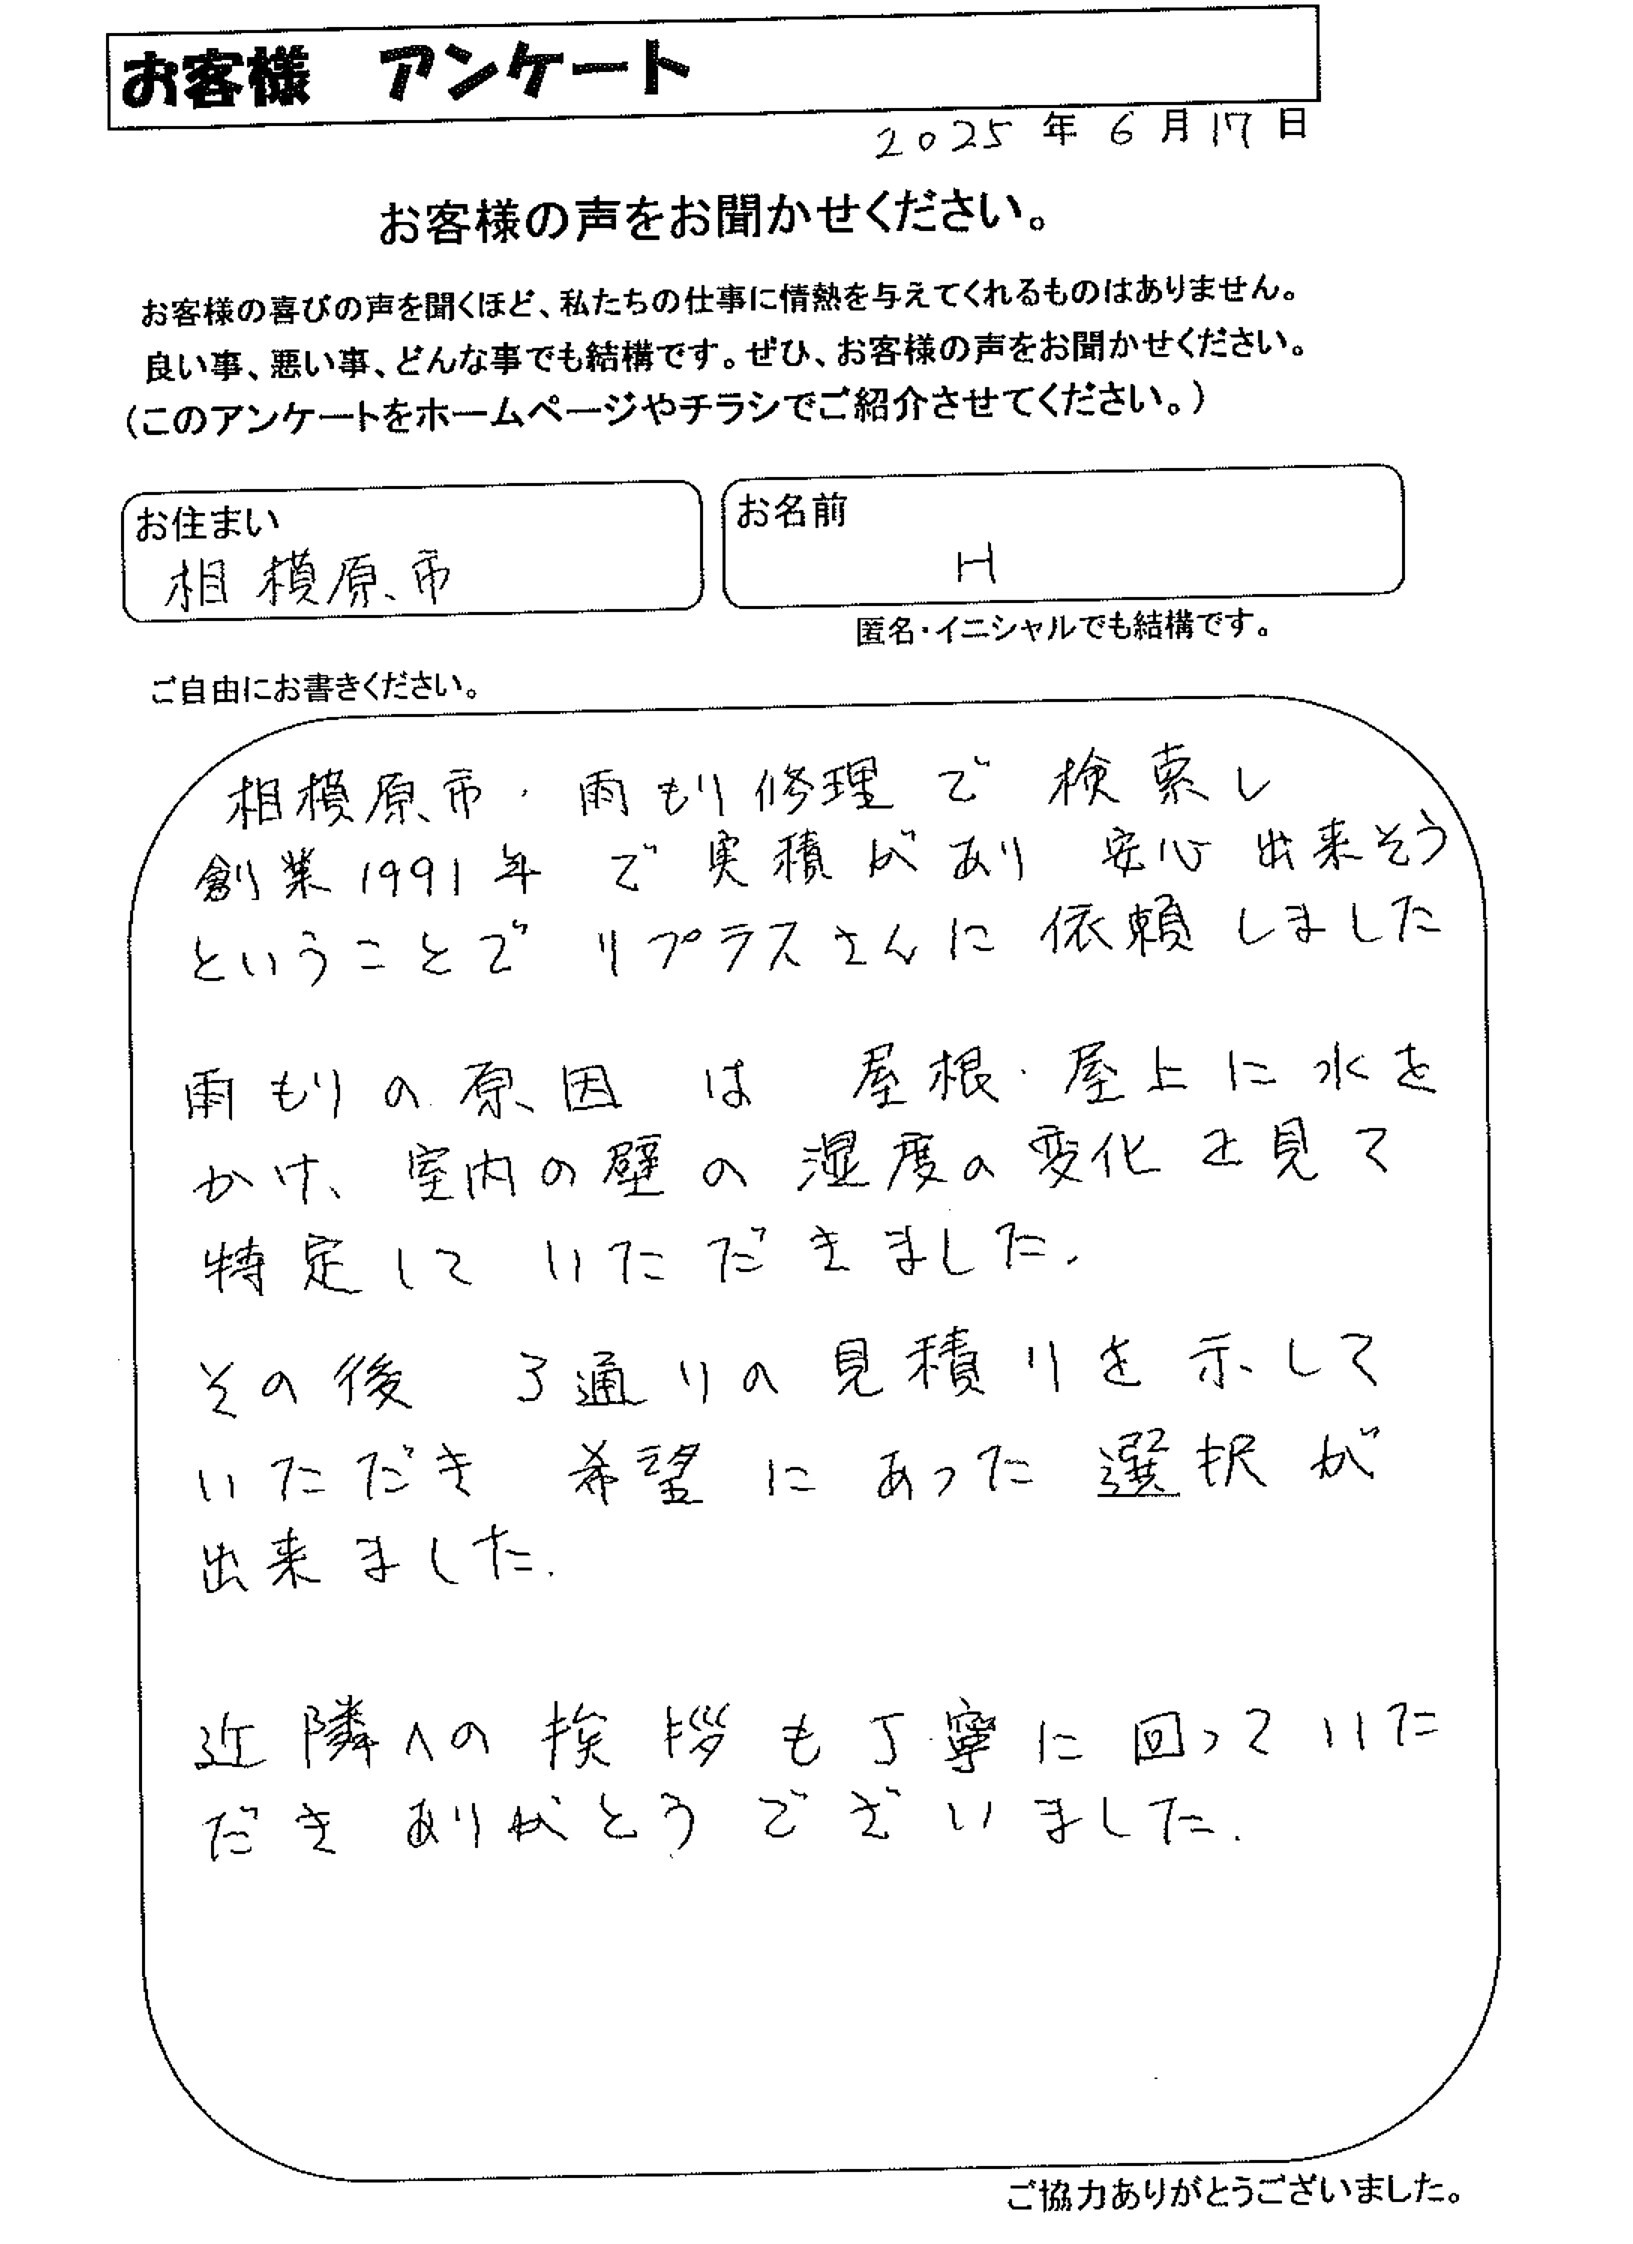 お客様 アンケート
2025年6月17日
お客様の声をお聞かせください。
お客様の喜びの声を聞くほど、私たちの仕事に情熱を与えてくれるものはありません。
良い事、悪い事、どんな事でも結構です。ぜひ、お客様の声をお聞かせください。
(このアンケートをホームページやチラシでご紹介させてください。)
お住まい
相模原市
お名前
H
匿名・イニシャルでも結構です。
ご自由にお書きください。
相模原市・雨もり修理で検索し
創業1991年で実積があり安心出来そう
ということでリプラスさんに依頼しました
雨もりの原因は屋根・屋上に水を
かけ、室内の壁の湿度の変化を見て
特定していただきました.
その後3通りの見積りを示して
いただき希望にあった選択が
出来ました.
近隣への挨拶も丁寧に回っていた
だきありがとうございました.
ご協力ありがとうございました。